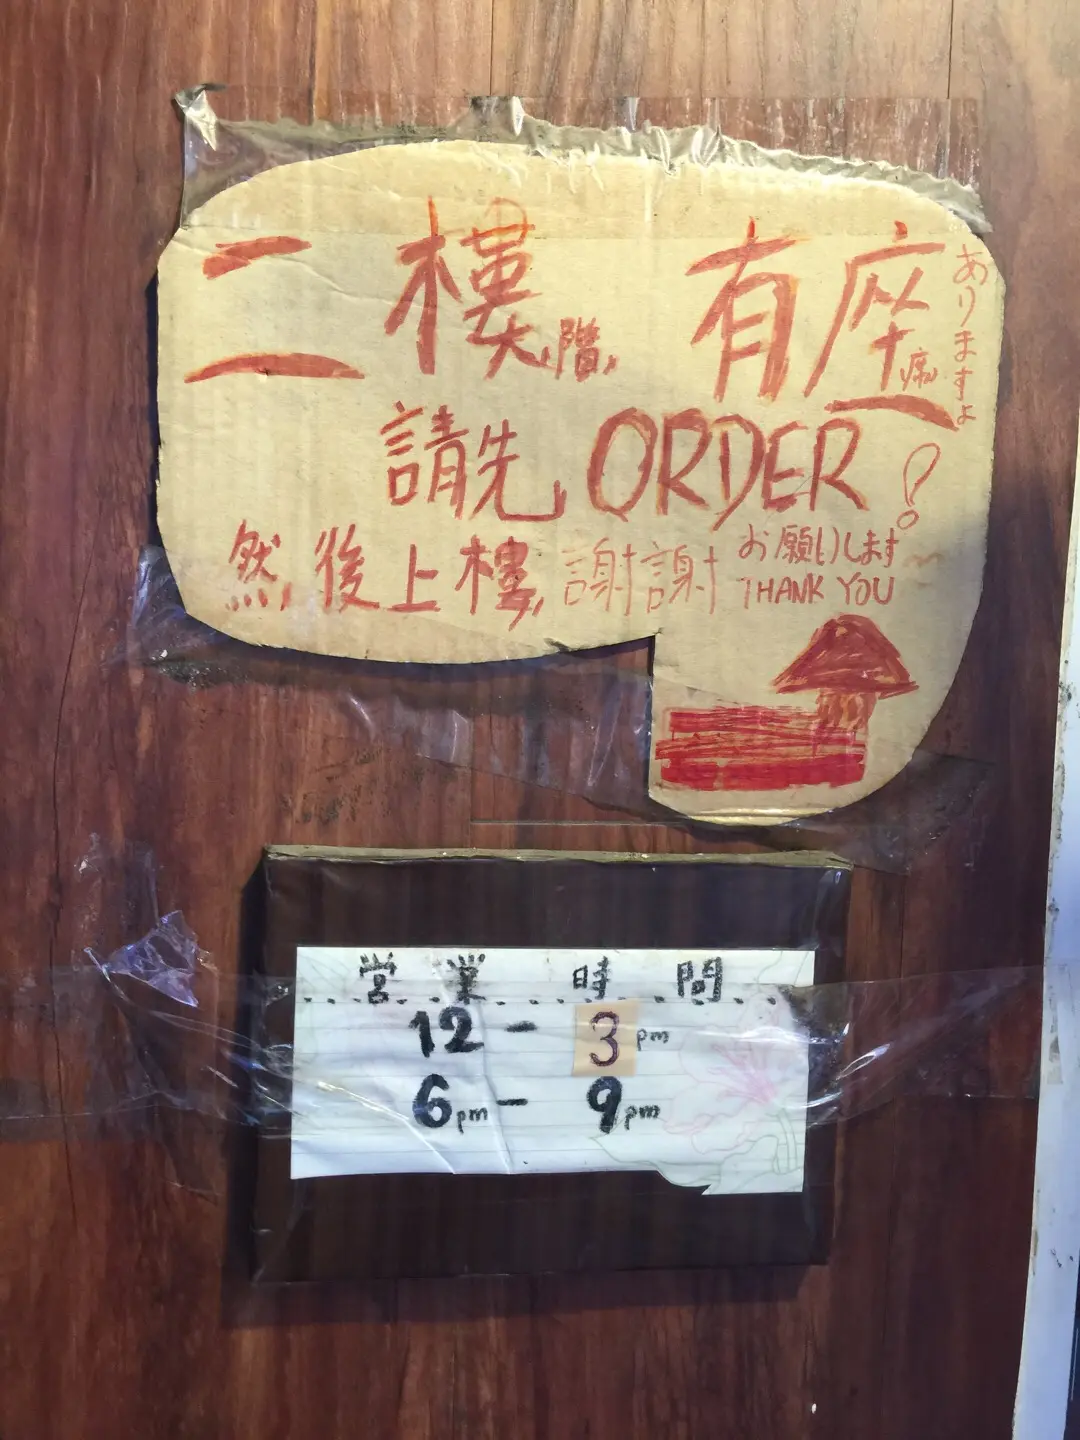 二樓(階) 有座(席)ありますよ
請先ORDER!
然後上樓, 謝謝 お願いします~
THANK YOU
営業時間
12-3pm
6pm-9pm